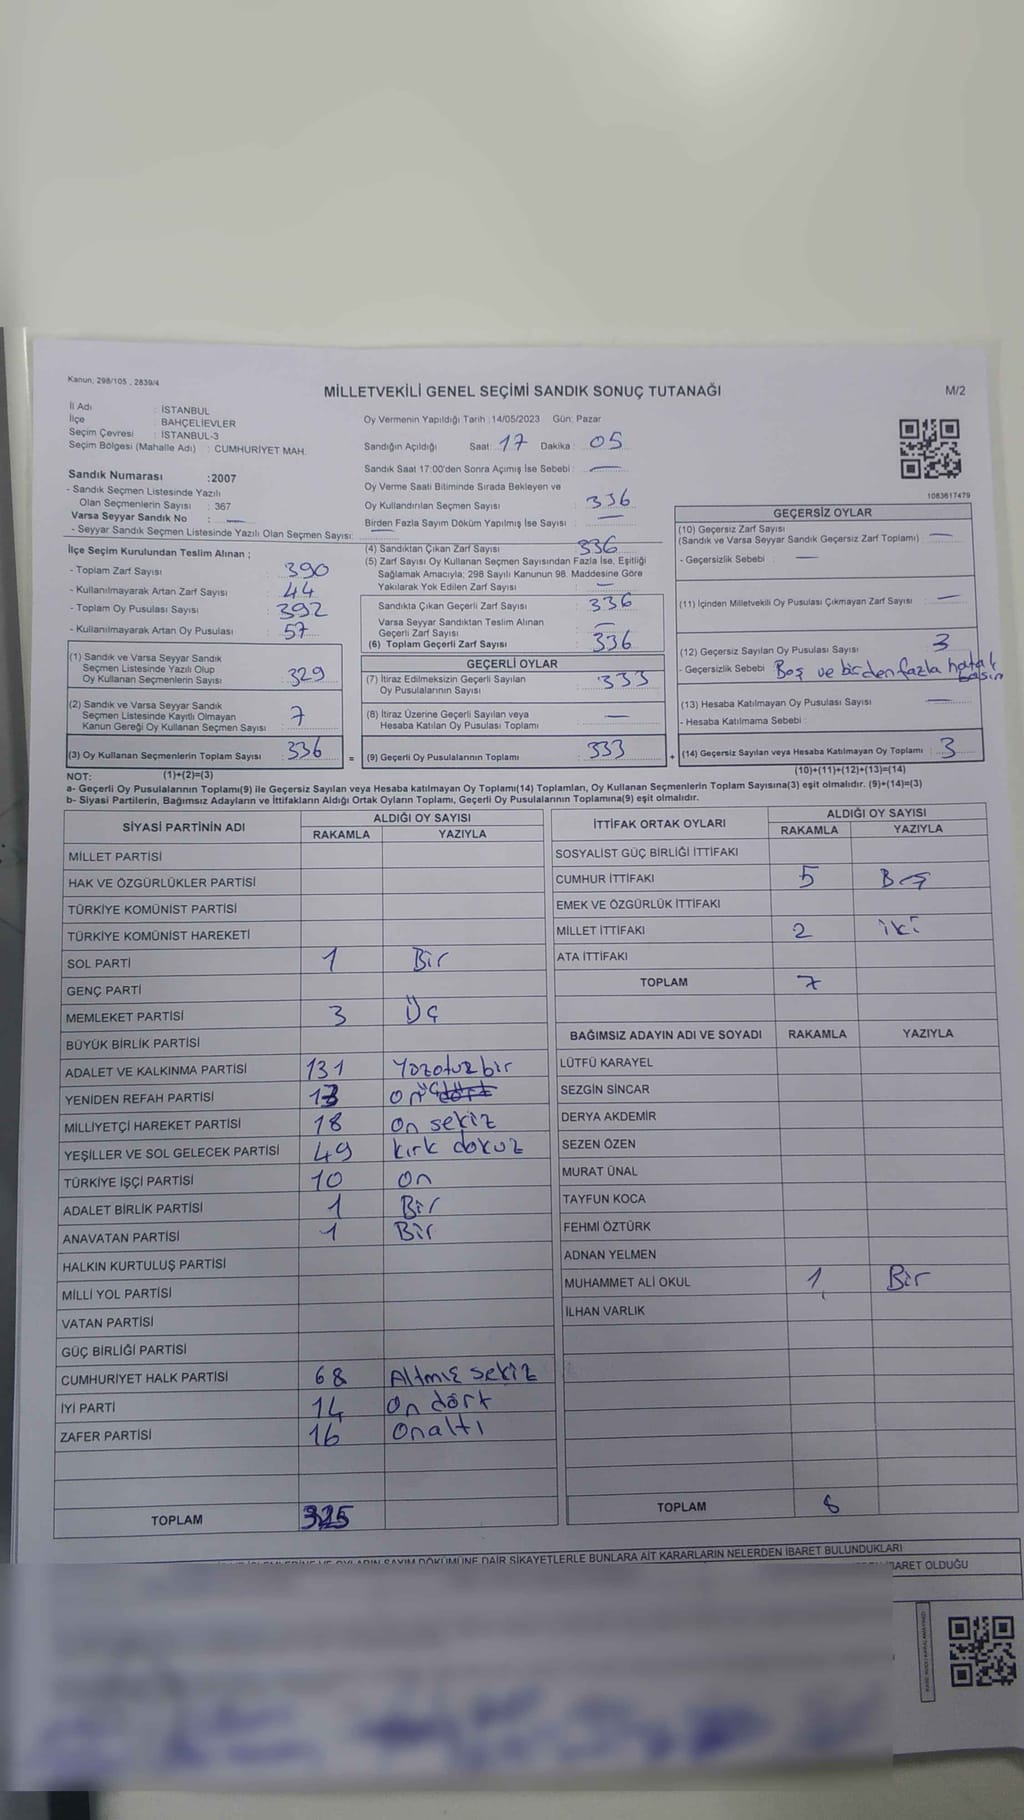 Kanun; 298/105 , 2839/4
MİLLETVEKİLİ GENEL SEÇİMİ SANDIK SONUÇ TUTANAĞI
M/2
İl Adı : İSTANBUL
İlçe : BAHÇELİEVLER
Seçim Çevresi : İSTANBUL-3
Seçim Bölgesi (Mahalle Adı) : CUMHURİYET MAH.
Sandık Numarası :2007
- Sandık Seçmen Listesinde Yazılı
Olan Seçmenlerin Sayısı : 367
Varsa Seyyar Sandık No : —
- Seyyar Sandık Seçmen Listesinde Yazılı Olan Seçmen Sayısı:
Oy Vermenin Yapıldığı Tarih :14/05/2023 Gün: Pazar
Sandığın Açıldığı Saat: 17 Dakika : 05
Sandık Saat 17:00'den Sonra Açımış İse Sebebi : —
Oy Verme Saati Bitiminde Sırada Bekleyen ve
Oy Kullandırılan Seçmen Sayısı : 336
Birden Fazla Sayım Döküm Yapılmış İse Sayısı : —
1083617479
İlçe Seçim Kurulundan Teslim Alınan ;
- Toplam Zarf Sayısı : 390
- Kullanılmayarak Artan Zarf Sayısı : 44
- Toplam Oy Pusulası Sayısı : 392
- Kullanılmayarak Artan Oy Pusulası : 57
(1) Sandık ve Varsa Seyyar Sandık
Seçmen Listesinde Yazılı Olup
Oy Kullanan Seçmenlerin Sayısı : 329
(2) Sandık ve Varsa Seyyar Sandık
Seçmen Listesinde Kayıtlı Olmayan
Kanun Gereği Oy Kullanan Seçmen Sayısı : 7
(3) Oy Kullanan Seçmenlerin Toplam Sayısı : 336
=
(4) Sandıktan Çıkan Zarf Sayısı : 336
(5) Zarf Sayısı Oy Kullanan Seçmen Sayısından Fazla İse, Eşitliği
Sağlamak Amacıyla; 298 Sayılı Kanunun 98. Maddesine Göre
Yakılarak Yok Edilen Zarf Sayısı : —
Sandıkta Çıkan Geçerli Zarf Sayısı : 336
Varsa Seyyar Sandıktan Teslim Alınan
Geçerli Zarf Sayısı : —
(6) Toplam Geçerli Zarf Sayısı : 336
GEÇERLİ OYLAR
(7) İtiraz Edilmeksizin Geçerli Sayılan
Oy Pusulalarının Sayısı : 333
(8) İtiraz Üzerine Geçerli Sayılan veya
Hesaba Katılan Oy Pusulası Toplamı : —
(9) Geçerli Oy Pusulalarının Toplamı : 333
+
GEÇERSİZ OYLAR
(10) Geçersiz Zarf Sayısı
(Sandık ve Varsa Seyyar Sandık Geçersiz Zarf Toplamı) : —
- Geçersizlik Sebebi : —
(11) İçinden Milletvekili Oy Pusulası Çıkmayan Zarf Sayısı : —
(12) Geçersiz Sayılan Oy Pusulası Sayısı : 3
- Geçersizlik Sebebi : Boş ve birden fazla hatalı basım
(13) Hesaba Katılmayan Oy Pusulası Sayısı : —
- Hesaba Katılmama Sebebi :
(14) Geçersiz Sayılan veya Hesaba Katılmayan Oy Toplamı : 3
NOT: (1)+(2)=(3)
(10)+(11)+(12)+(13)=(14)
a- Geçerli Oy Pusulalarının Toplamı(9) ile Geçersiz Sayılan veya Hesaba katılmayan Oy Toplamı(14) Toplamları, Oy Kullanan Seçmenlerin Toplam Sayısına(3) eşit olmalıdır. (9)+(14)=(3)
b- Siyasi Partilerin, Bağımsız Adayların ve İttifakların Aldığı Ortak Oyların Toplamı, Geçerli Oy Pusulalarının Toplamına(9) eşit olmalıdır.
SİYASİ PARTİNİN ADI
ALDIĞI OY SAYISI
RAKAMLA YAZIYLA
MİLLET PARTİSİ
HAK VE ÖZGÜRLÜKLER PARTİSİ
TÜRKİYE KOMÜNİST PARTİSİ
TÜRKİYE KOMÜNİST HAREKETİ
SOL PARTİ 1 Bir
GENÇ PARTİ
MEMLEKET PARTİSİ 3 Üç
BÜYÜK BİRLİK PARTİSİ
ADALET VE KALKINMA PARTİSİ 131 Yüzotuzbir
YENİDEN REFAH PARTİSİ 13 on üç dört
MİLLİYETÇİ HAREKET PARTİSİ 18 on sekiz
YEŞİLLER VE SOL GELECEK PARTİSİ 49 kırk dokuz
TÜRKİYE İŞÇİ PARTİSİ 10 on
ADALET BİRLİK PARTİSİ 1 Bir
ANAVATAN PARTİSİ 1 Bir
HALKIN KURTULUŞ PARTİSİ
MİLLİ YOL PARTİSİ
VATAN PARTİSİ
GÜÇ BİRLİĞİ PARTİSİ
CUMHURİYET HALK PARTİSİ 68 Altmış sekiz
İYİ PARTİ 14 On dört
ZAFER PARTİSİ 16 Onaltı
TOPLAM 325
İTTİFAK ORTAK OYLARI
ALDIĞI OY SAYISI
RAKAMLA YAZIYLA
SOSYALİST GÜÇ BİRLİĞİ İTTİFAKI
CUMHUR İTTİFAKI 5 Beş
EMEK VE ÖZGÜRLÜK İTTİFAKI
MİLLET İTTİFAKI 2 iki
ATA İTTİFAKI
TOPLAM 7
BAĞIMSIZ ADAYIN ADI VE SOYADI RAKAMLA YAZIYLA
LÜTFÜ KARAYEL
SEZGİN SİNCAR
DERYA AKDEMİR
SEZEN ÖZEN
MURAT ÜNAL
TAYFUN KOCA
FEHMİ ÖZTÜRK
ADNAN YELMEN
MUHAMMET ALİ OKUL 1 Bir
İLHAN VARLIK
TOPLAM 8
SAYIM DÖKÜMÜNE DAİR ŞİKAYETLERLE BUNLARA AİT KARARLARIN NELERDEN İBARET BULUNDUKLARI
OLDUĞU